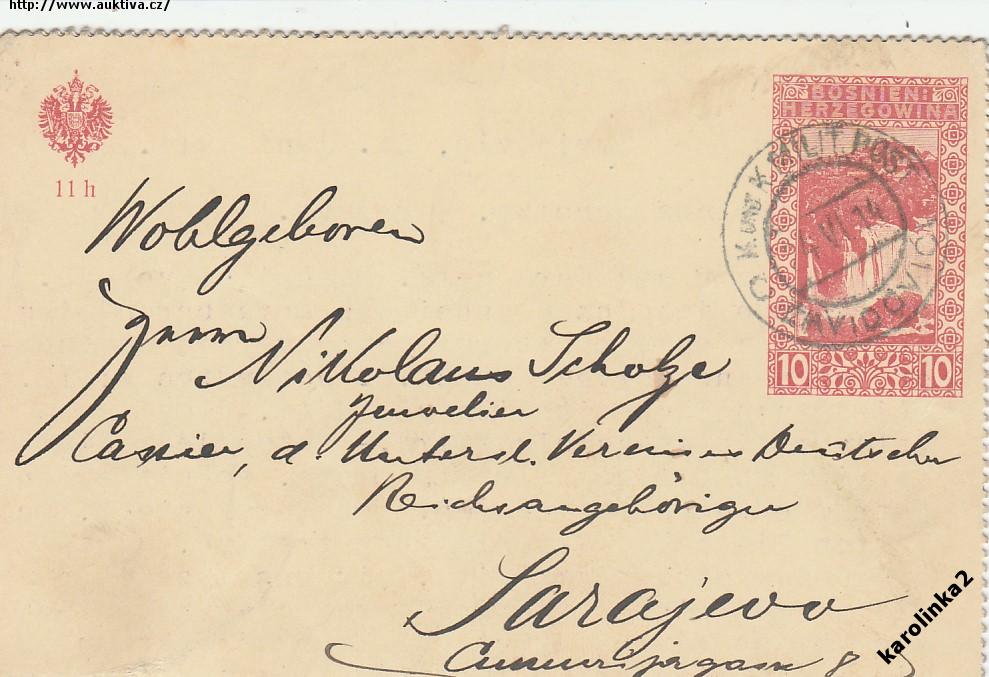 http://www.auktiva.cz/
BOSNIEN-
HERZEGOWINA
11 h
K. UND K. MILIT. POST
ZAVIDOVIĆI
4 VI 14
10 10
Wohlgeboren
Herrn
Nikolaus Scholze
Juwelier
Cassier, d. Unterst. Vereines Deutscher
Reichsangehöriger
Sarajevo
8
karolinka2